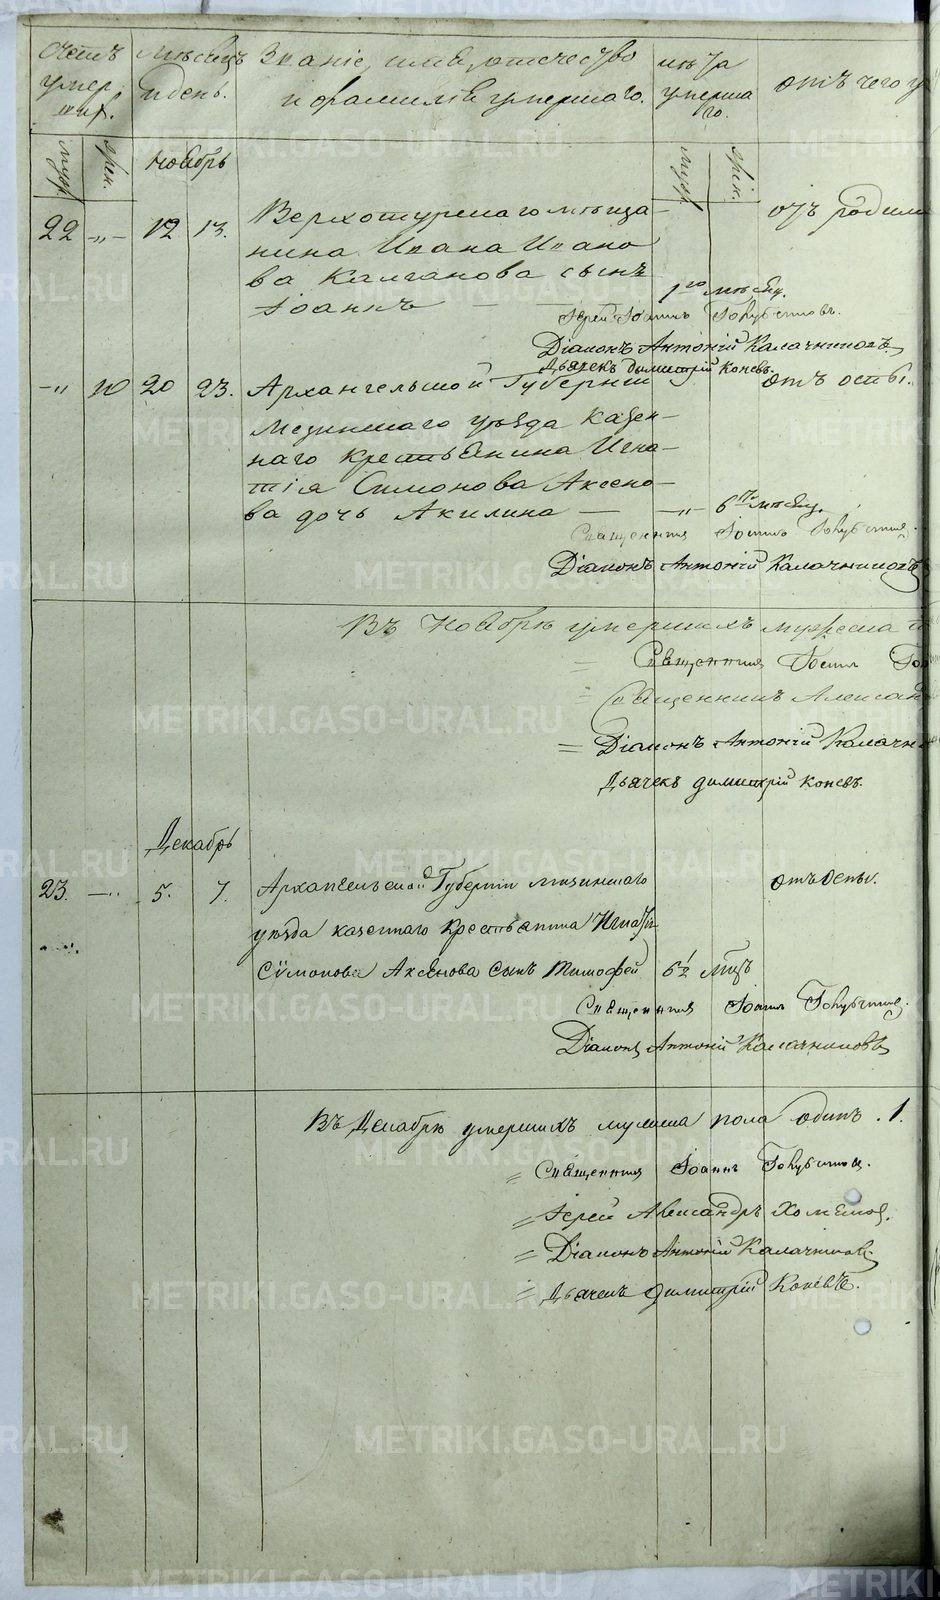 Счетъ умер. Мѣсяцъ и день. Званіе, имя, отечество и фамилія умершаго. лѣта умершаго. отъ чего у
муж. жен. Ноябрь муж. жен.
22 -"- 12 13. Верхотурскаго мѣща- отъ родим
нина Ивана Ивано
ва Калганова сынъ
Іоаннъ — — 1го мѣсяц.
Іерей Іоаннъ Голубчиковъ.
Діаконъ Антоній Калачниковъ.
Дьячекъ Димитрій Коневъ.
-" 10 20 23. Архангельской Губерніи отъ оспы.
Мезинскаго уѣзда казен-
наго крестьянина Игна-
тія Симонова Аксено-
ва дочь Акилина — -"- 6ти мѣсяц.
Священникъ Іоаннъ Голубчиков.
Діаконъ Антоній Калачниковъ
Въ Ноябрѣ умершихъ мужеска
= Священникъ Іоаннъ Гол
= Священникъ Александ
= Діаконъ Антоній Калачн
Дьячекъ Димитрій Коневъ.
Декабрь
23. -.. 5. 7. Архангельской Губерніи мезинскаго отъ оспы.
уѣзда казеннаго Крестьянина Игнатія
Симонова Аксенова сынъ Тимофей 6½ мцъ
Священникъ Іоаннъ Голубчиков.
Діаконъ Антоній Калачниковъ
Въ Декабрѣ умершихъ мужеска пола одинъ. 1.
= Священникъ Іоаннъ Голубчиков.
= Іерей Александръ Хомяков.
= Діаконъ Антоній Калачников.
= Дьячекъ Димитрій Коневъ.
METRIKI.GASO-URAL.RU